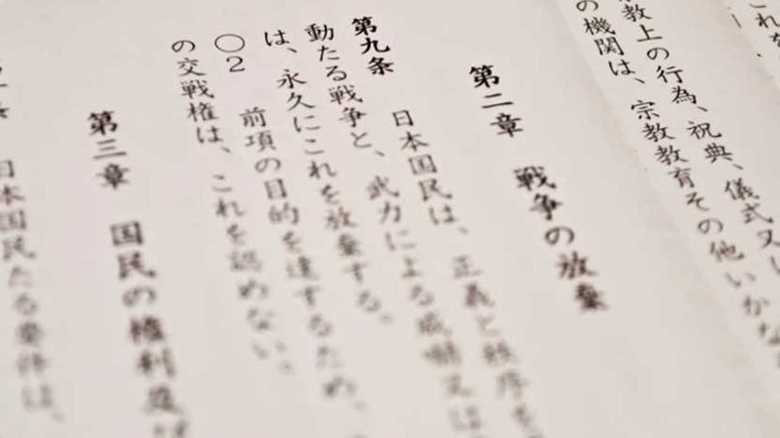 教上の行為、祝典、儀式又
の機関は、宗教教育その他いかな
第二章 戦争の放棄
第九条 日本国民は、正義と秩序を
動たる戦争と、武力による威嚇又は
は、永久にこれを放棄する。
○2 前項の目的を達するため、
の交戦権は、これを認めない。
第三章 国民の権利及び
条 日本国民たる要件は、